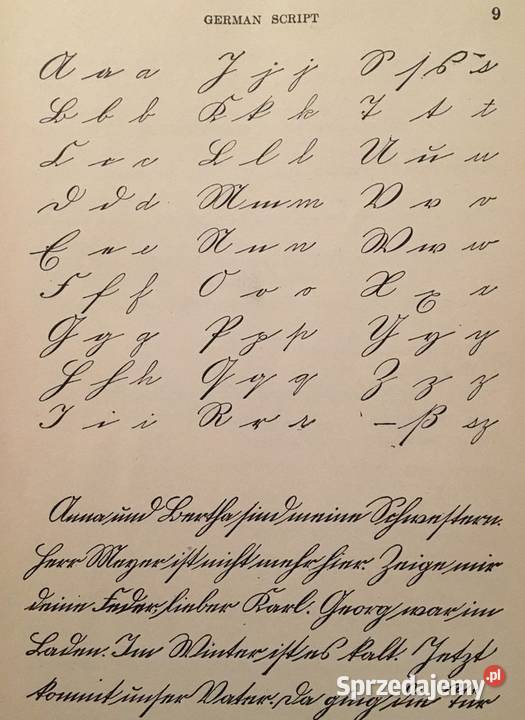 GERMAN SCRIPT 9
A a a J j j S ſ s s
B b b K k k T t t
C c c L l l U u u
D d d M m m V v v
E e e N n n W w w
F f f O o o X x x
G g g P p p Y y y
H h h Q q q Z z z
I i i R r r — ß sz
Anna und Bertha sind meine Schwestern.
Herr Meyer ist nicht mehr hier. Zeige mir
deine Feder, lieber Karl. Georg war im
Laden. Im Winter ist es kalt. Jetzt
kommt unser Vater. Da ging die Tür
Sprzedajemy.pl